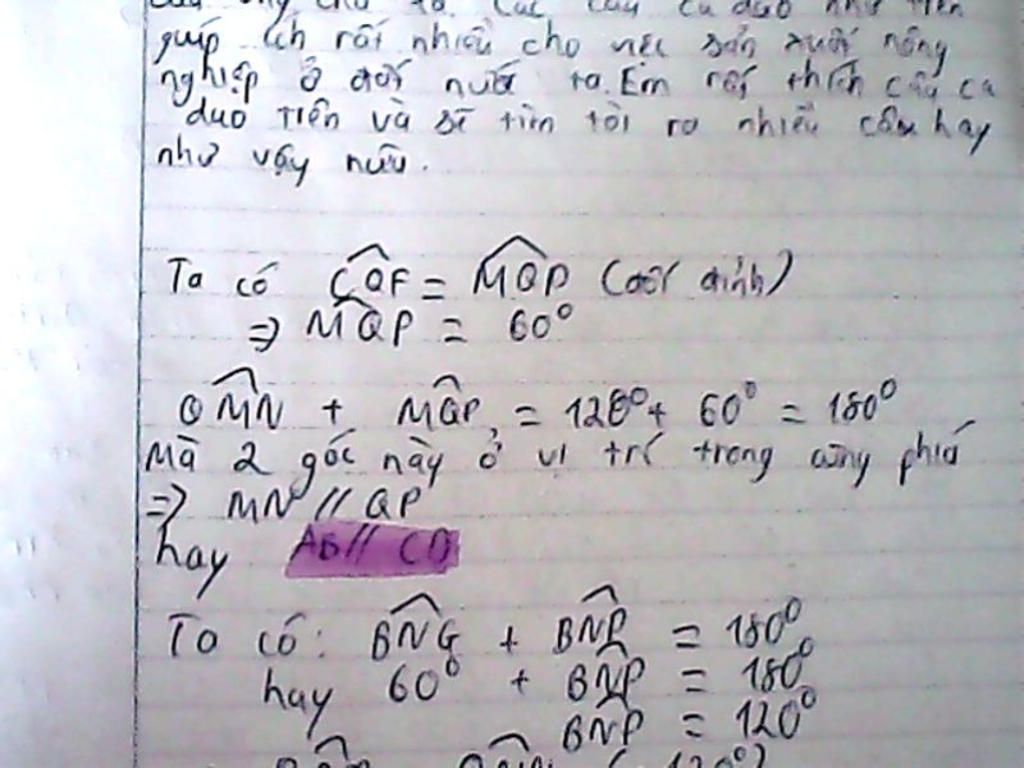 cho ta. Các câu ca dao như trên
giúp ích rất nhiều cho việc sản xuất nông
nghiệp ở đất nước ta. Em rất thích câu ca
dao trên và sẽ tìm tòi ra nhiều câu hay
như vậy nữu.
Ta có CQF = MQP (đối đỉnh)
=> MQP = 60°
QMN + MQP = 120° + 60° = 180°
Mà 2 góc này ở vị trí trong cùng phía
=> MN // QP
hay AB // CD
Ta có: BNG + BNP = 180°
hay 60° + BNP = 180°
BNP = 120°